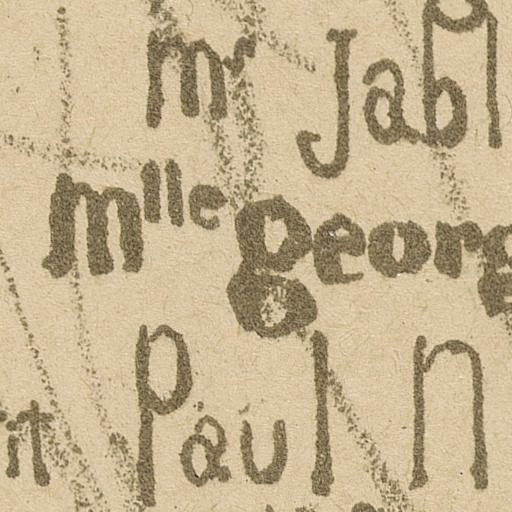 mr Jabl
mlle georg
nt Paul n